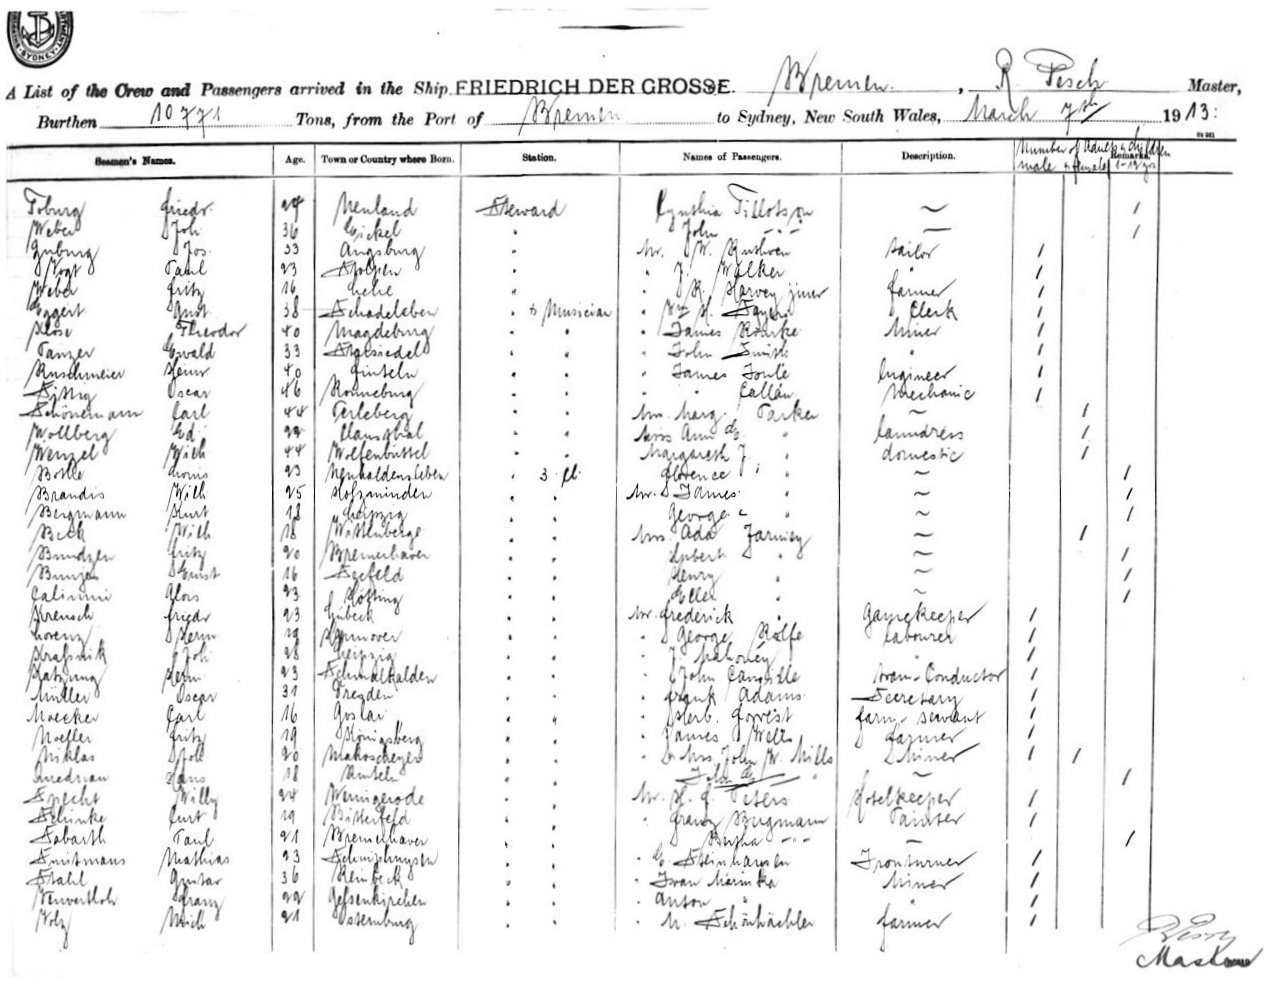 A List of the Crew and Passengers arrived in the Ship FRIEDRICH DER GROSSE. Bremen. , R. Pesch Master,
Burthen 10771 Tons, from the Port of Bremen to Sydney, New South Wales, March 7th 1913:
Seamen's Names. Age. Town or Country where Born. Station. Names of Passengers. Description. Number of Adults & Children Remarks.
male female 1-12 yrs
Friedr. 24 Neuland Steward Cynthia Tillotson ~ 1
Weber Joh 36 Eickel " John " ~ 1
Jos. 33 Augsburg " Mr. W. Ruthven sailor 1
Vogt Paul 23 Stolpen " " J. Walker " 1
Weber Fritz 16 Lehe " " R. Harvey junr farmer 1
Eggert Gust 38 Schadeleben " & Musician " Wm H. Clerk 1
Klose Theodor 40 Magdeburg " " " James Rourke Miner 1
Tanzer Ewald 33 " " " John Smith " 1
Ruschmeier Heinr 40 Rinteln " " " James Engineer 1
Oscar 46 Ronneburg " " " " Callan Mechanic 1
Schönemann Carl 44 Perleberg " " Mrs. Marg. Parker ~ 1
Wollberg Ed. 22 Clausthal " " Miss Ann E. " laundress 1
Wenzel Wilh 44 Wolfenbüttel " " Margareth J. " domestic 1
Bothe Louis 23 Neuhaldensleben " 3. Cl. Florence " ~ 1
Brandis Wilh. 25 Holzminden " " Mr. James " ~ 1
Bergmann Kurt 18 Leipzig " " George " ~ 1
Beck Wilh 18 Wittenberge " " Mrs. Ada ~ 1
Bundzen Fritz 20 Bremerhaven " " Hubert " ~ 1
Ernst 16 Seefeld " " Henry " ~ 1
Alois 23 " " Ellen " ~ 1
Friedr 23 Lübeck " " Mr. Frederick " Gamekeeper 1
Lorenz Herm 19 Hannover " " " George Rolfe labourer 1
Joh 28 Leipzig " " " J. Mahoney " 1
Herm 23 Schmalkalden " " " John Tram-Conductor 1
Müller Oscar 31 Dresden " " " Frank Adams Secretary 1
Carl 16 Goslar " " " Herb. Forrest farm-servant 1
Moeller Fritz 19 Königsberg " " " James Wells farmer 1
Niklas 20 " " " & Mrs. John W. Mills Miner 1 1
Hans 18 Rinteln " " John " ~ 1
Specht Willy 24 Wernigerode " " Mr. H. C. Peters Hotelkeeper 1
Schinke Curt 19 Bitterfeld " " " Franz Bergmann Painter 1
Sabarth Paul 21 Bremerhaven " " Bertha " ~ 1
Mathias 23 " " " E. Steinhausen Ironturner 1
Stahl Gustav 36 Reinbeck " " " Ivan Miner 1
Franz 22 Gelsenkirchen " " " Anton " " 1
Volz Mich 21 Osternburg " " " M. farmer 1
Master